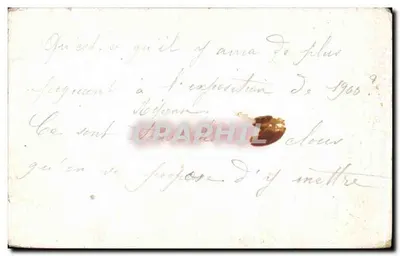 Qu'est-ce qu'il y aura de plus
piquant à l'exposition de 1900?
Réponse
Ce sont les clous
qu'on se propose d'y mettre